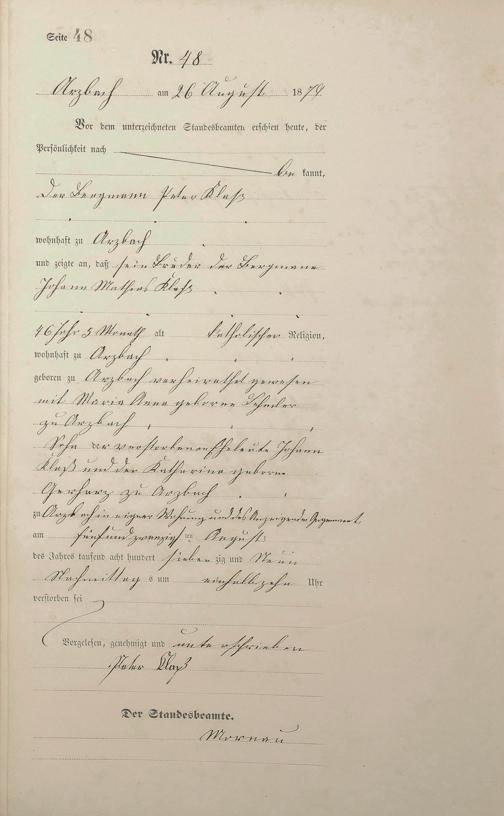 Seite 48
Nr. 48
Arzbach am 26 August 1879
Vor dem unterzeichneten Standesbeamten erschien heute, der
Persönlichkeit nach
be kannt,
der Bergmann Peter Klaß
wohnhaft zu Arzbach
und zeigte an, daß sein Bruder der Bergmann
Johann Mathias Klaß
46 Jahr 5 Monath alt katholischer Religion,
wohnhaft zu Arzbach
geboren zu Arzbach verheirathet gewesen
mit Maria Anna geborne
zu Arzbach
Sohn der verstorbenen Eheleute Johann
Klaß und der Katharina geborne
Gerharz zu Arzbach
zu Arzbach in eigner Wohnung und des Anzeigenden Gegenwart
am fünf und zwanzigsten August
des Jahres tausend acht hundert sieben zig und Neun
Nachmittag s um einhalbzehn Uhr
verstorben sei
Vorgelesen, genehmigt und unterschrieben
Peter Klaß
Der Standesbeamte.